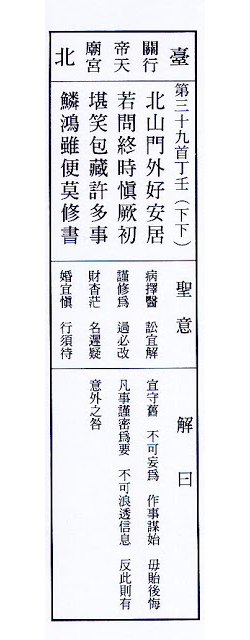 臺
北
關行
帝天
廟宮
第三十九首丁壬（下下）
北山門外好安居
若問終時慎厥初
堪笑包藏許多事
鱗鴻雖便莫修書
聖意
病擇醫 訟宜解
謹修為 過必改
財杳茫 名遲疑
婚宜慎 行須待
解曰
宜守舊 不可妄為 作事謀始 毋貽後悔
凡事謹密為要 不可浪透信息 反此則有
意外之咎